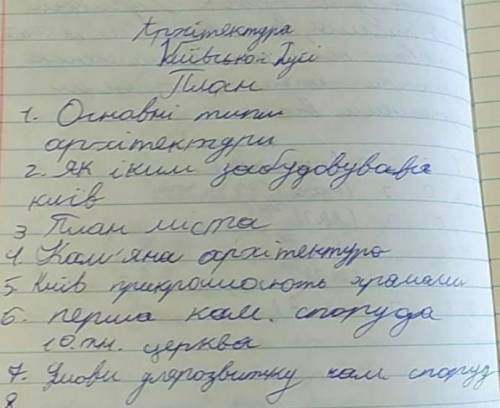 Архітектура
Київської Русі
План
1. Основні типи
архітектури
2. Як і ким забудовувався
київ
3 План миста
4 Кам'яна архітектура
5. Київ прикрашають храмами
6. перша кам. споруда
10.тн. церква
7. Умови для розвитку кам споруд
8